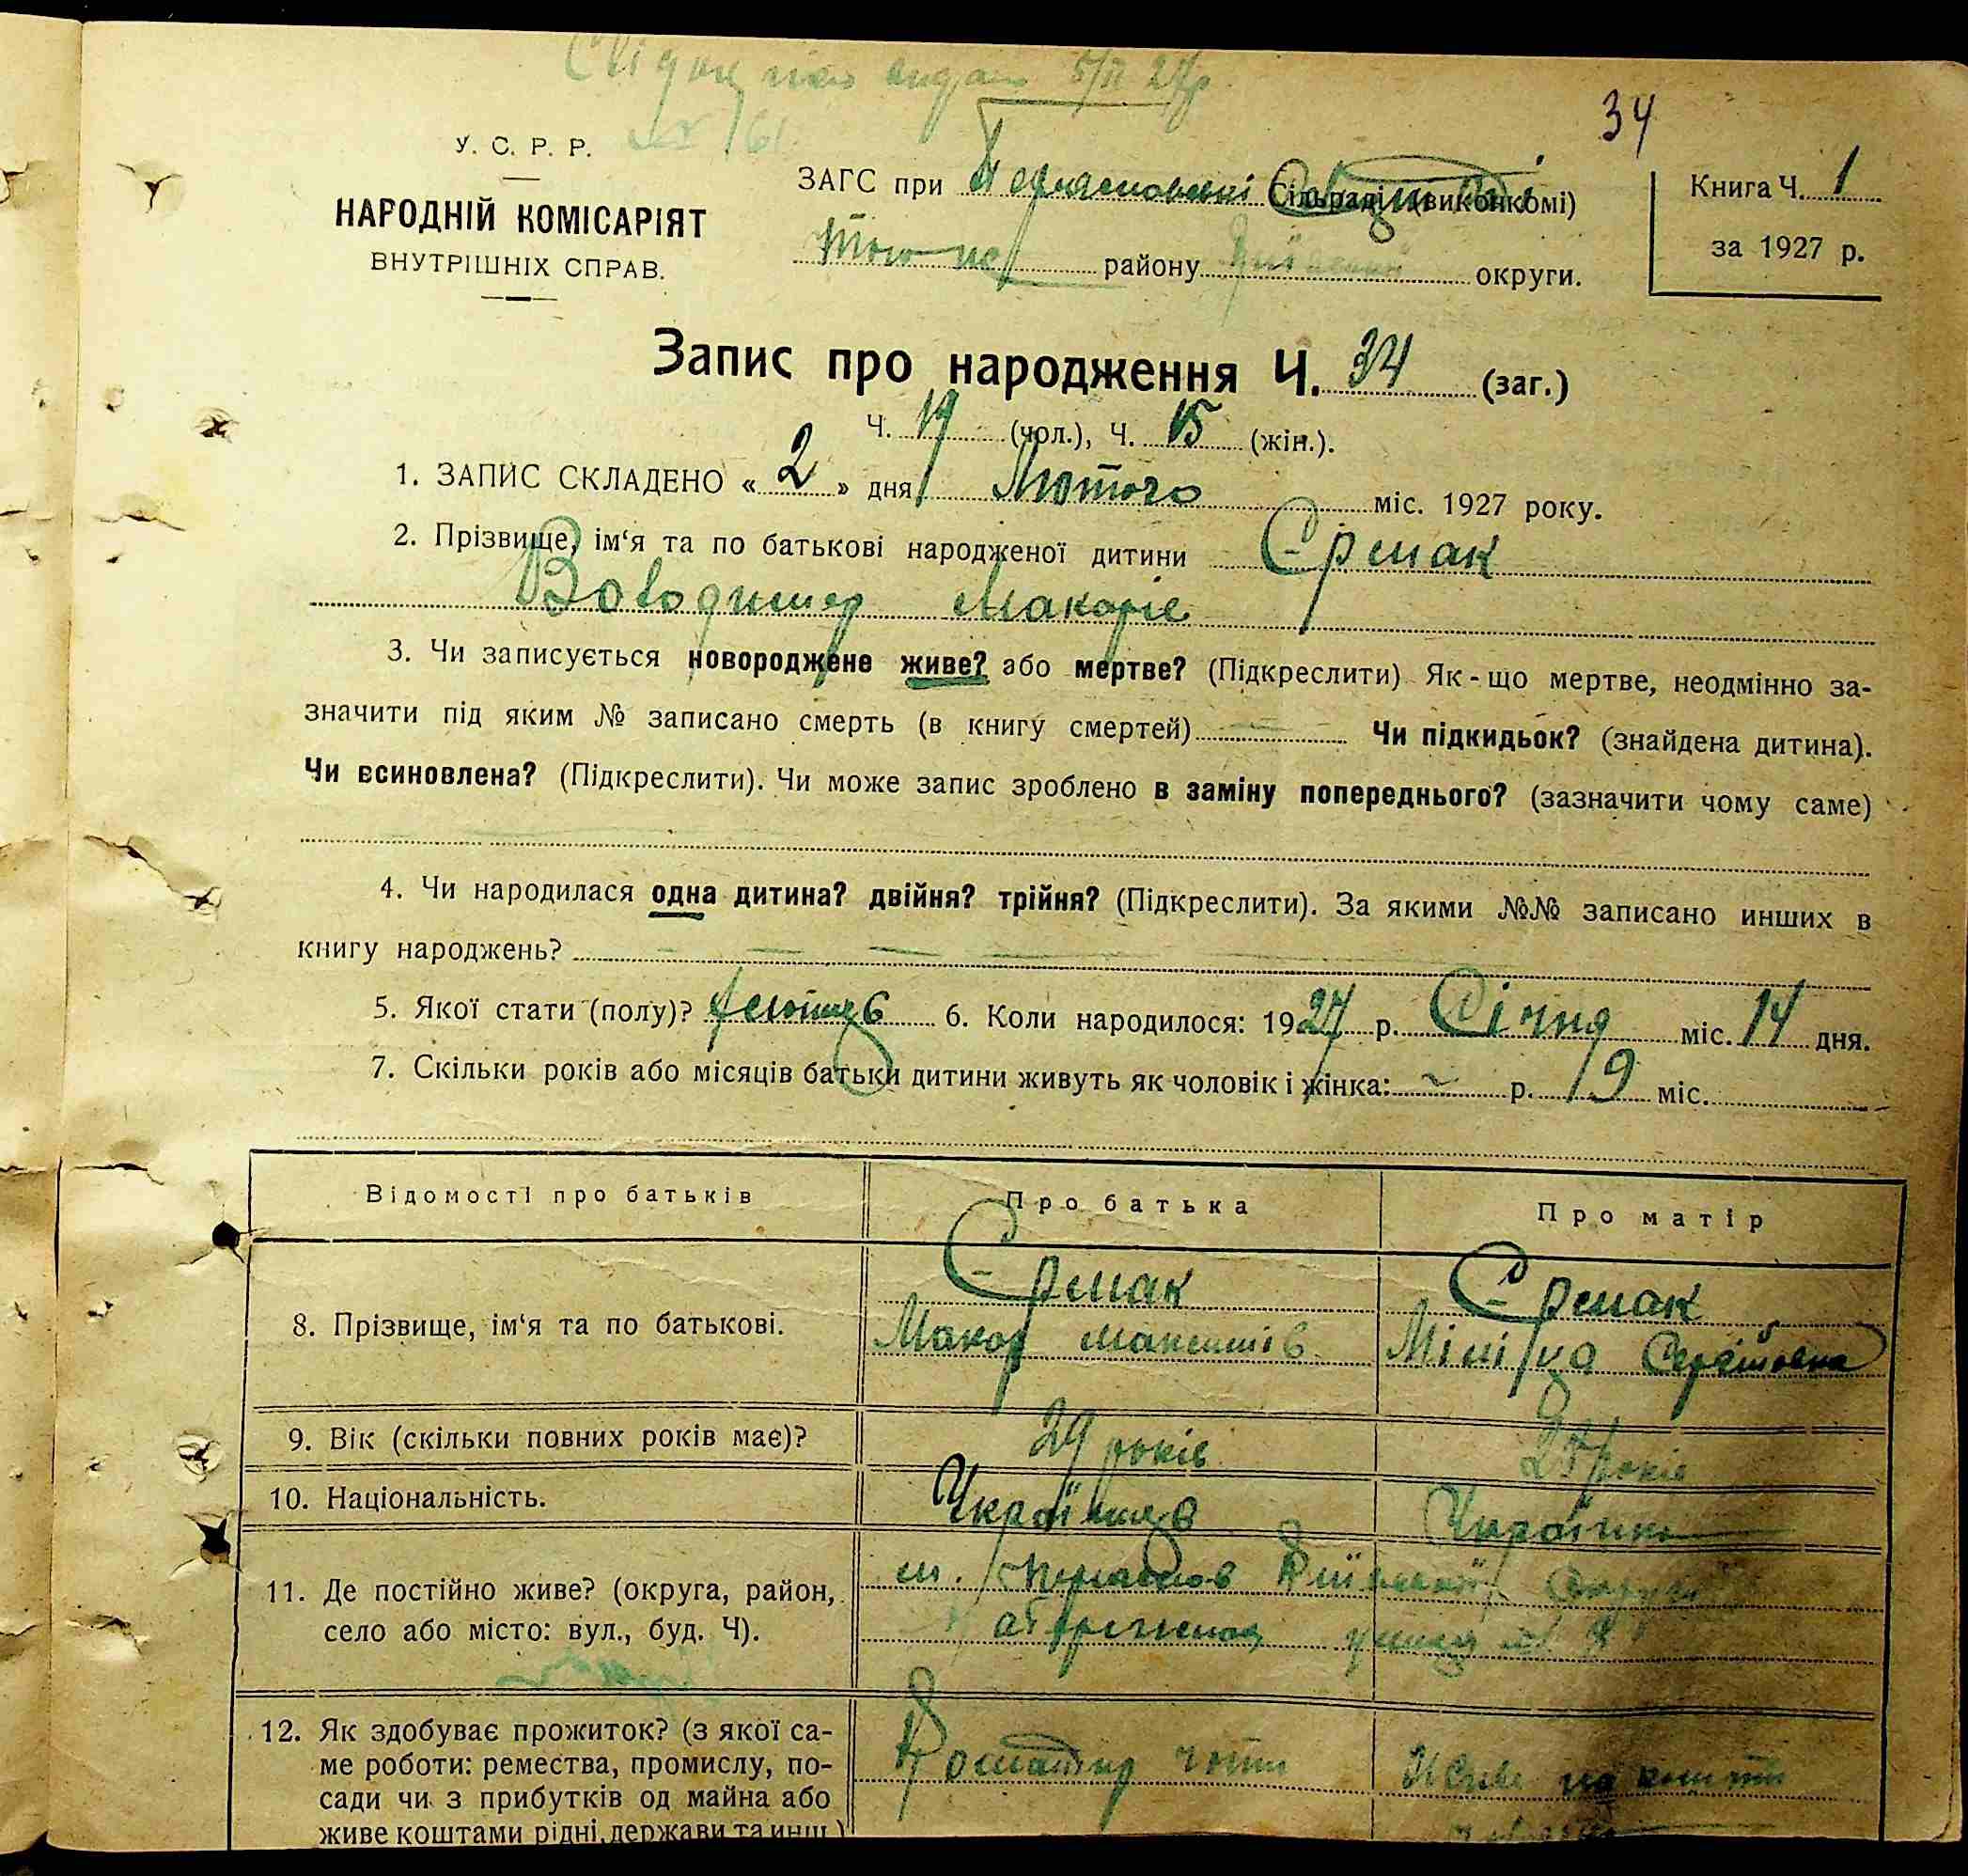 видано 5/II 27р
№ 161
34
У. С. Р. Р.
НАРОДНІЙ КОМІСАРІЯТ
ВНУТРІШНІХ СПРАВ.
ЗАГС при Сільраді (виконкомі)
району округи.
Книга Ч. 1
за 1927 р.
Запис про народження Ч. 34 (заг.)
Ч. 19 (чол.), Ч. 15 (жін.).
1. ЗАПИС СКЛАДЕНО « 2 » дня Лютого міс. 1927 року.
2. Прізвище, ім‘я та по батькові народженої дитини Єрмак
Володимер Макаріє
3. Чи записується новороджене живе? або мертве? (Підкреслити) Як-що мертве, неодмінно за-
значити під яким № записано смерть (в книгу смертей) — Чи підкидьок? (знайдена дитина).
Чи всиновлена? (Підкреслити). Чи може запис зроблено в заміну попереднього? (зазначити чому саме)
4. Чи народилася одна дитина? двійня? трійня? (Підкреслити). За якими №№ записано инших в
книгу народжень? — — — —
5. Якої стати (полу)? 6. Коли народилося: 1927 р. Січня міс. 14 дня.
7. Скільки років або місяців батьки дитини живуть як чоловік і жінка: ~ р. 9 міс.
Відомості про батьків Про батька Про матір
8. Прізвище, ім‘я та по батькові. Єрмак Єрмак
Макар Максимів Сергіївна
9. Вік (скільки повних років має)? 29 років 25 років
10. Національність. Українець Українка
11. Де постійно живе? (округа, район, м. Округи
село або місто: вул., буд. Ч).
12. Як здобуває прожиток? (з якої са-
ме роботи: ремества, промислу, по- Командир чоти Живе на кошти
сади чи з прибутків од майна або
живе коштами рідні, держави та инш.)